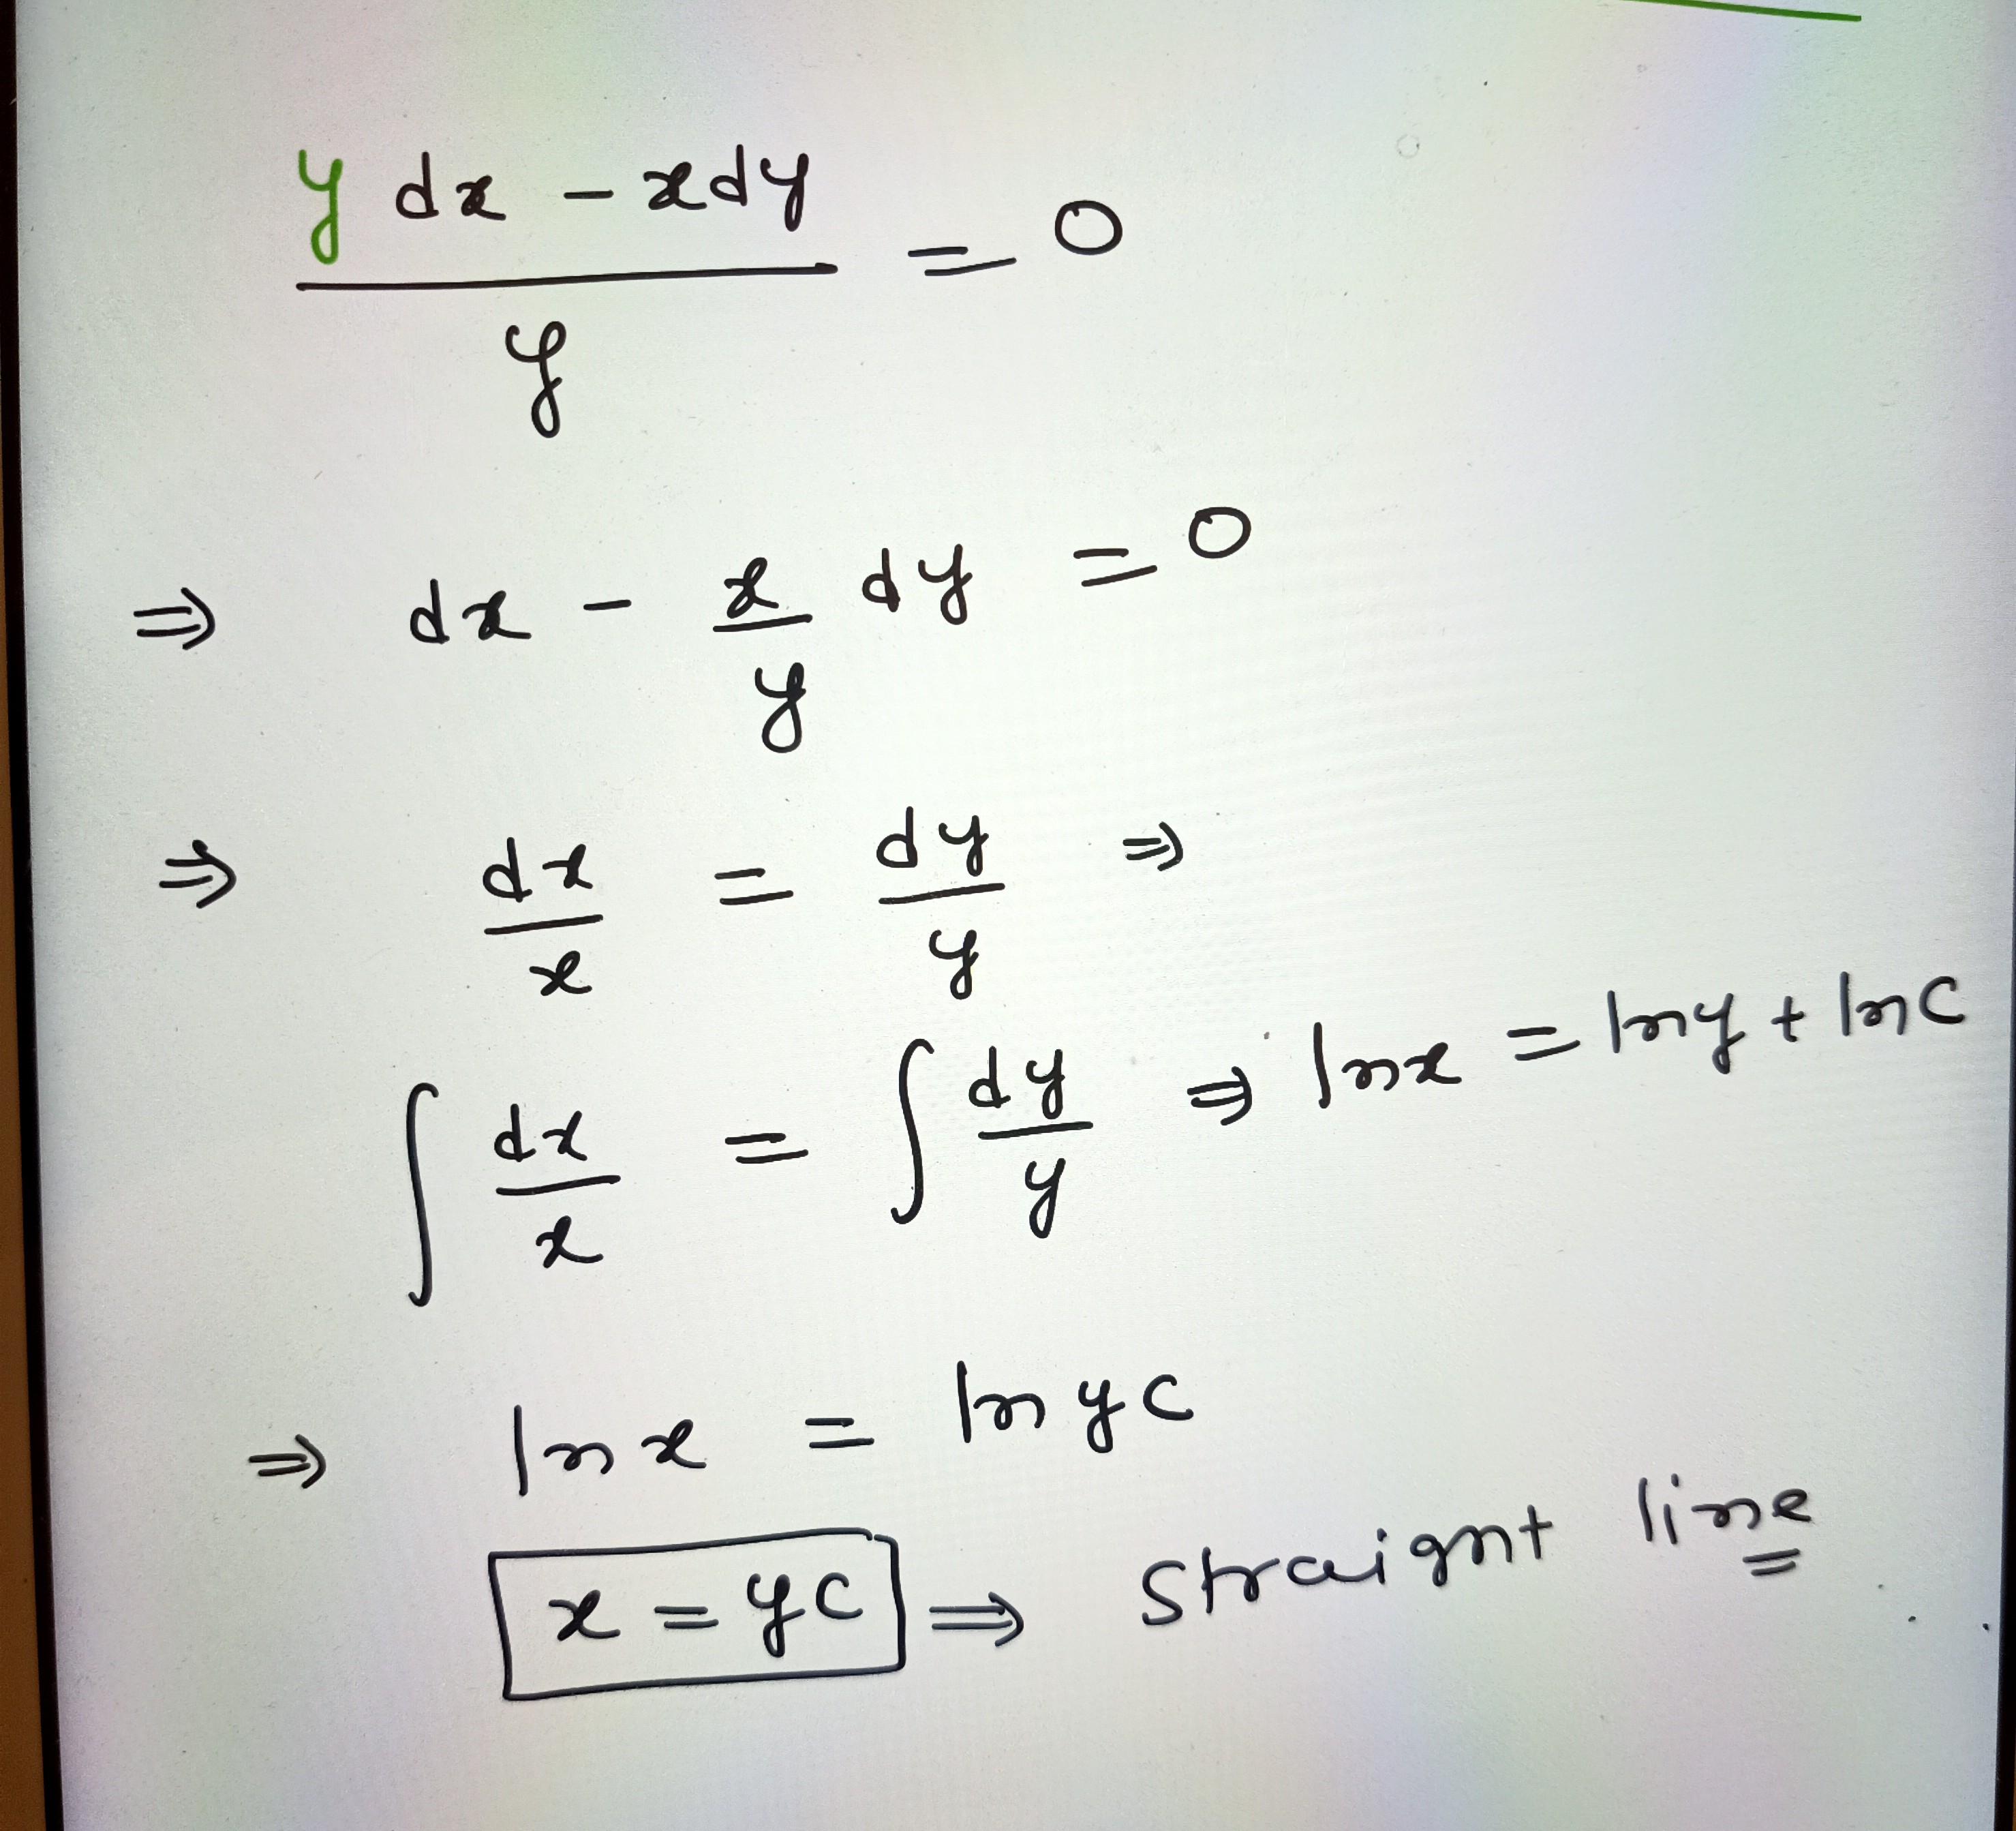 (y dx - xdy)/y = 0
⇒ dx - x/y dy = 0
⇒ dx/x = dy/y ⇒
∫ dx/x = ∫ dy/y ⇒ lnx = lny + lnC
⇒ lnx = ln yc
x = yc ⇒ Straignt line